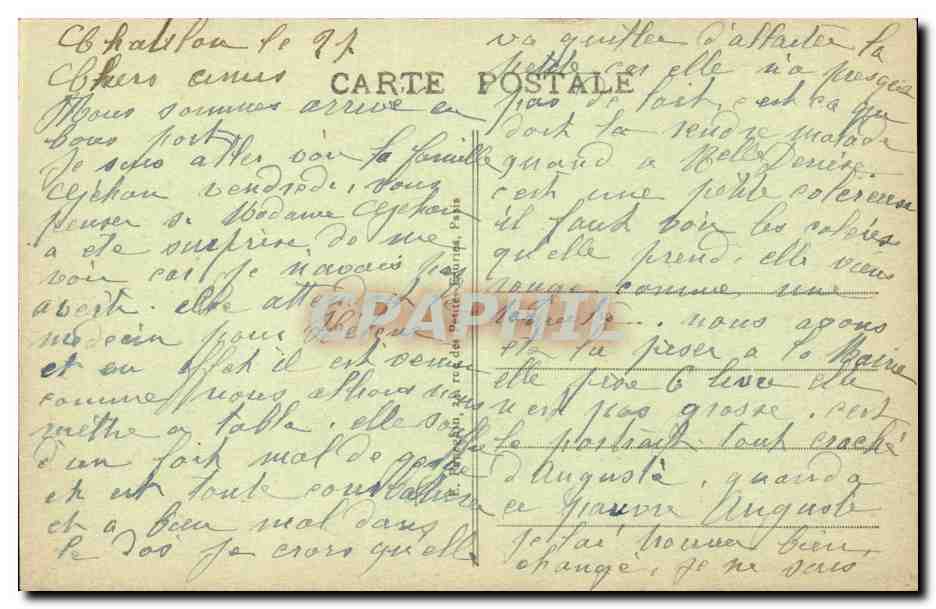 le 27
Chers amis
CARTE POSTALE
Nous sommes arrivé en
bons port.
Je suis aller voir la famille
vendredi, vous
penser si Madame
a été surprise de me
voir car je n'avais pas
averti. elle attendait le
médecin pour Hélène
et en effet il est venu
comme nous allions nous
mettre a table. elle souffre
d'un fort mal de gorge
et est toute
et a bien mal dans
le dos je crois qu'elle
va quitter d'allaiter la
petite car elle n'a presque
pas de lait, c'est ca qui
doit la rendre malade
quand a Melle
c'est une petite colereuse
il faut voir les colères
qu'elle prend, elle viens
rouge comme une
nous avons
été la peser a la Mairie
elle pèse 6 livre elle
n'est pas grosse. c'est
le portrait tout craché
d'Auguste, quand a
ce pauvre Auguste
je l'ai trouver bien
changé, je ne sais
rue des Petites-Ecuries, Paris
CPAPHIL